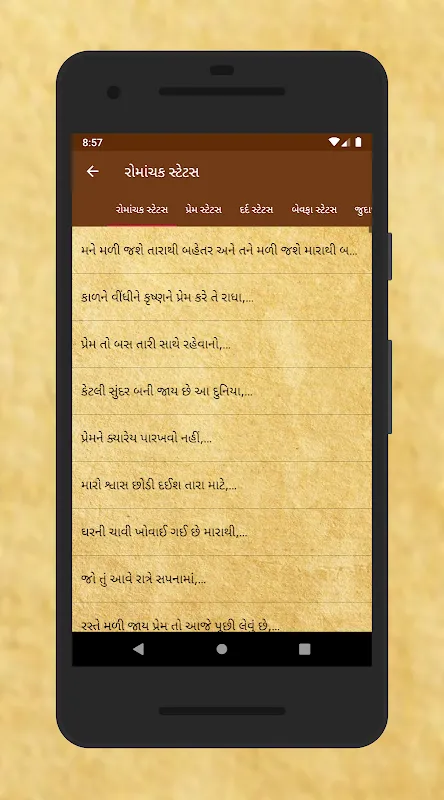 8:57
રોમાંચક સ્ટેટસ
રોમાંચક સ્ટેટસ પ્રેમ સ્ટેટસ દર્દ સ્ટેટસ બેવફા સ્ટેટસ જુદા
મને મળી જશે તારાથી બહેતર અને તને મળી જશે મારાથી બ...
કાળને વીંધીને કૃષ્ણને પ્રેમ કરે તે રાધા,...
પ્રેમ તો બસ તારી સાથે રહેવાનો,...
કેટલી સુંદર બની જાય છે આ દુનિયા,...
પ્રેમને ક્યારેય પારખવો નહીં,...
મારો શ્વાસ છોડી દઈશ તારા માટે,...
ઘરની ચાવી ખોવાઈ ગઈ છે મારાથી,...
જો તું આવે રાત્રે સપનામાં,...
રસ્તે મળી જાય પ્રેમ તો આજે પૂછી લેવું છે,...